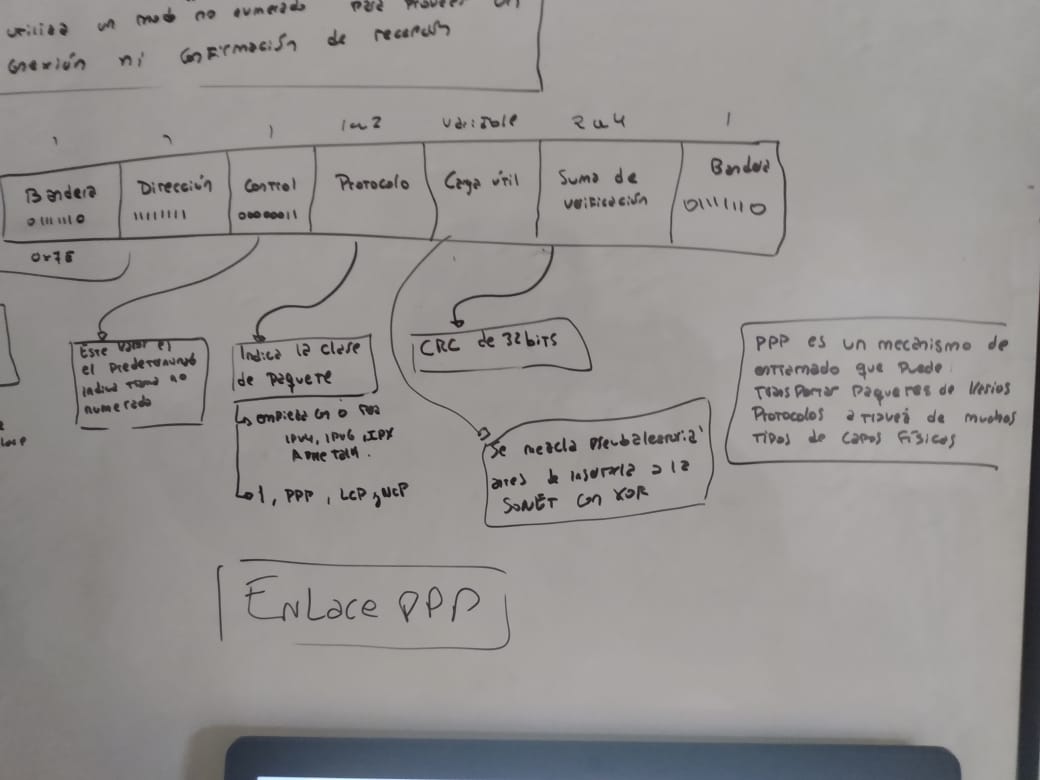 utiliza un modo no numerado para proveer
conexión ni confirmación de recepción
1 1 1 1 a 2 variable 2 a 4 1
Bandera Dirección Control Protocolo Carga útil Suma de verificación Bandera
01111110 11111111 00000011 01111110
0x7E
Este valor es
el Predeterminado
indica trama no
numerado
Indica la clase
de paquete
empieza con 0 para
IPv4, IPv6, IPX
AppleTalk.
1, PPP, LCP y NCP
CRC de 32 bits
Se mezcla Pseudoaleatoria
antes de insertarla a la
SONET con XOR
PPP es un mecanismo de
entramado que puede
Transportar Paquetes de Varios
Protocolos a través de muchos
Tipos de capas Físicas
Enlace PPP